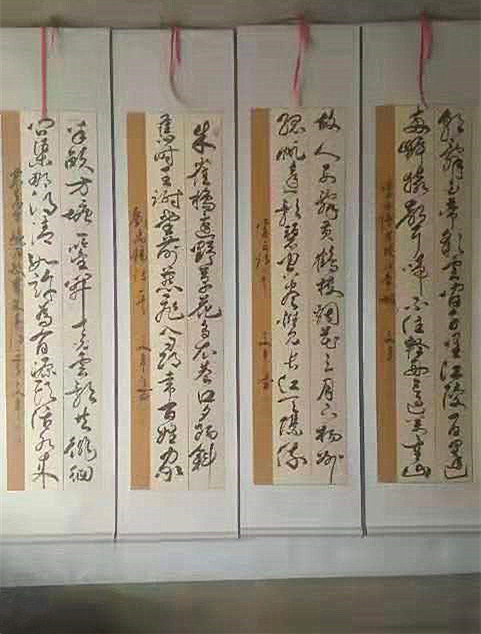 朝辭白帝彩雲間千里江陵一日還
兩岸猿聲啼不住輕舟已過萬重山
故人西辭黃鶴樓煙花三月下揚州
孤帆遠影碧空盡唯見長江天際流
朱雀橋邊野草花烏衣巷口夕陽斜
舊時王謝堂前燕飛入尋常百姓家
劉禹錫詩一首
半畝方塘一鑒開天光雲影共徘徊
問渠那得清如許為有源頭活水來